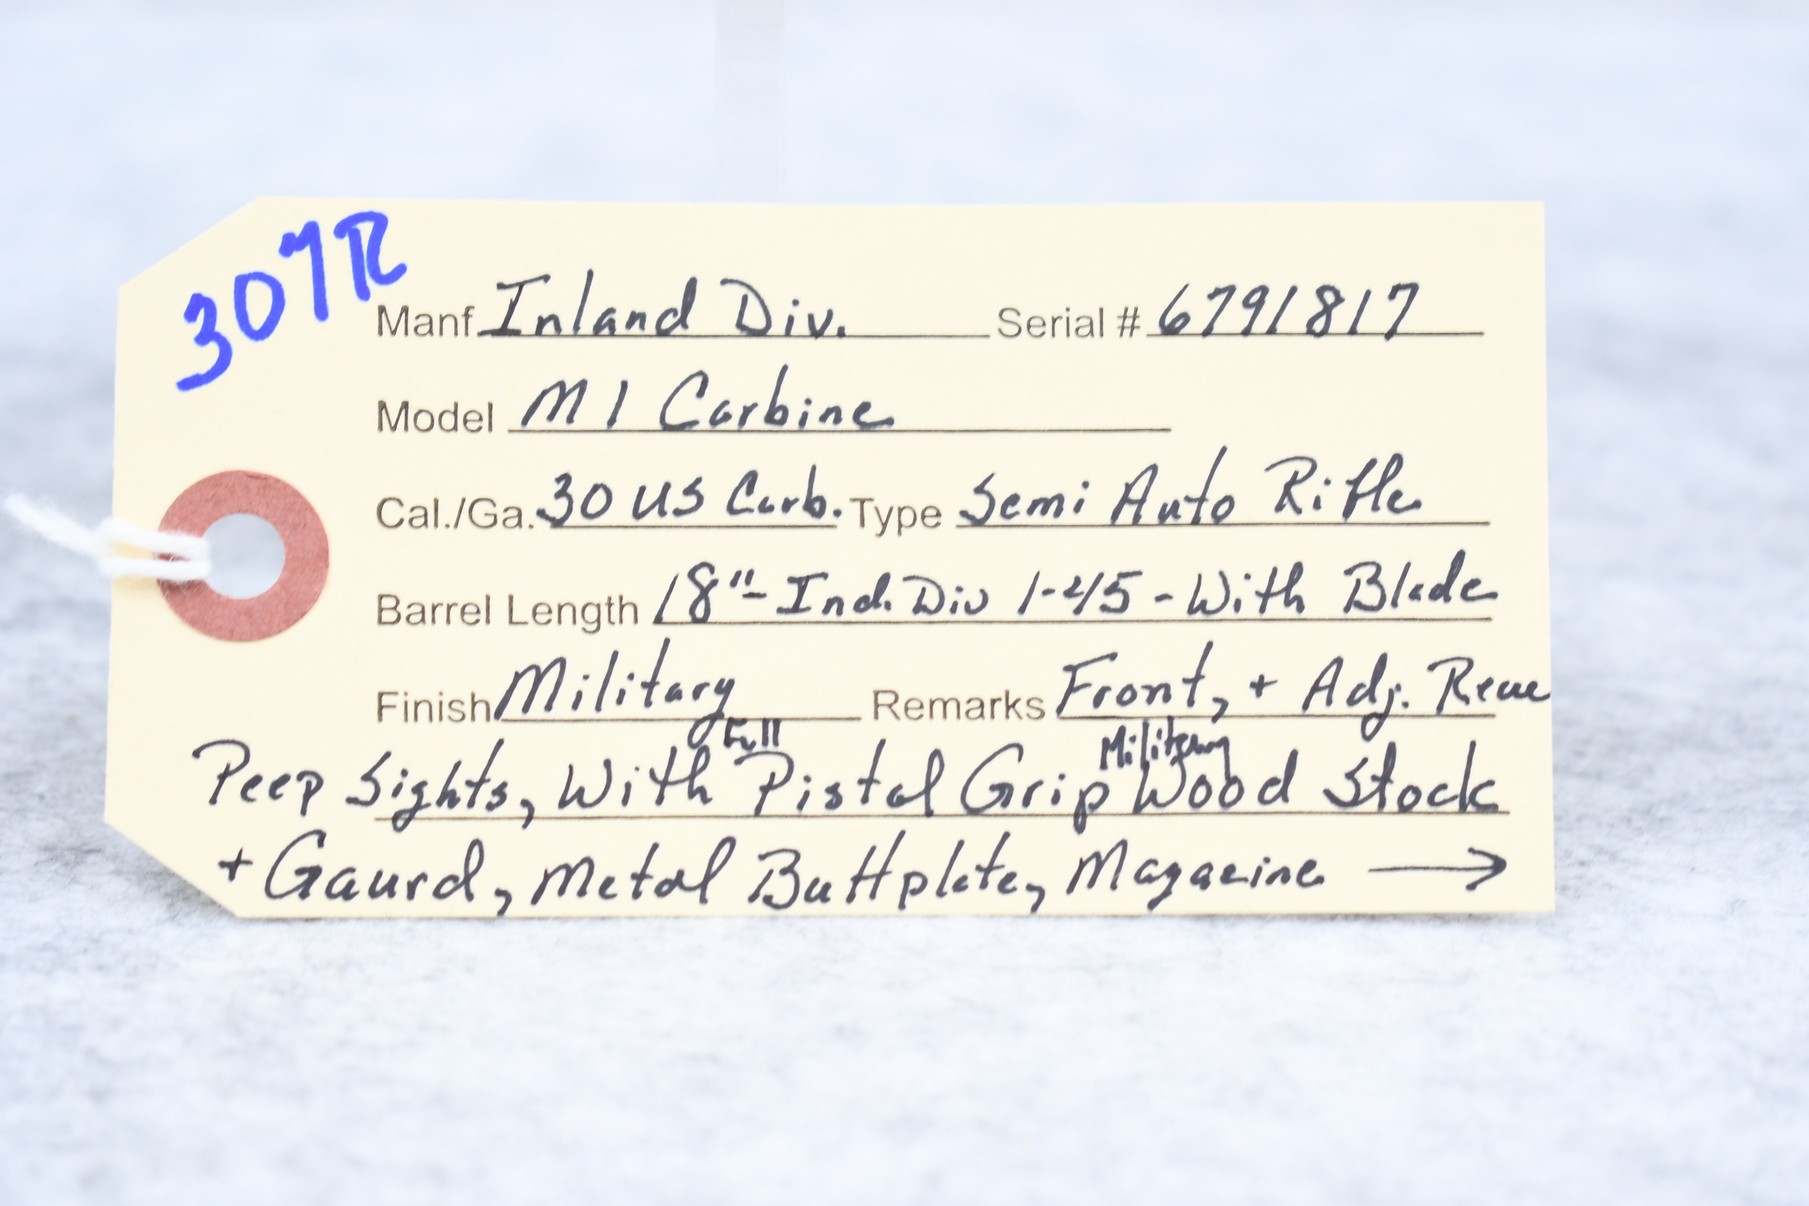 307R
Manf Inland Div. Serial # 6791817
Model M1 Carbine
Cal./Ga. 30 US Carb. Type Semi Auto Rifle
Barrel Length 18"- Ind. Div 1-45 - With Blade
Finish Military Remarks Front, + Adj. Rear
Full Military
Peep Sights, With Pistol Grip Wood Stock
+ Gaurd, Metal Buttplate, Magazine →